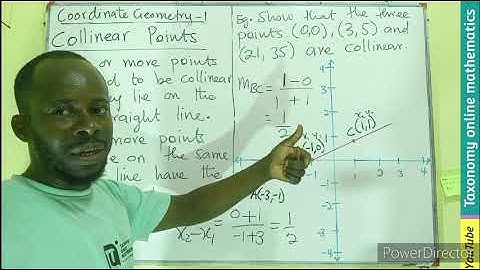 Coordinate Geometry-1
Collinear Points
or more points
to be collinear
lie on the
straight line.
more points
on the same
line have the
x₂-x₁ = 0+1/-1+3 = 1/2
Eg: Show that the three
points (0,0), (3,5) and
(21, 35) are collinear.
M_BC = 1-0/1+1
= 1/2
C(1,1)
(-1,0)
A(-3,-1)
4
3
2
1
1 2 3 4
-2
-3
-4
Taxonomy online mathematics
YouTube
PowerDirector